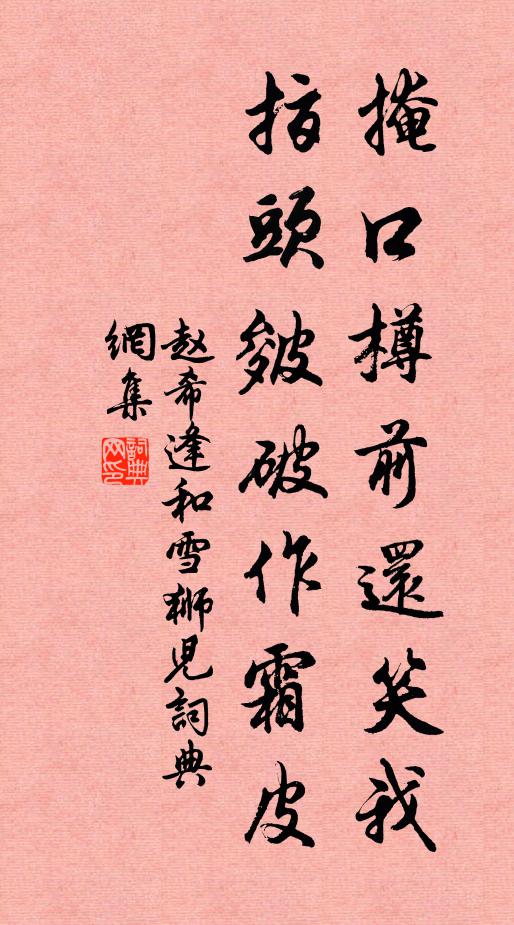 掩口樽前還笑我
指頭皴破作霜皮
赵希逢和雪獅児詞典
網集
詞典
网印